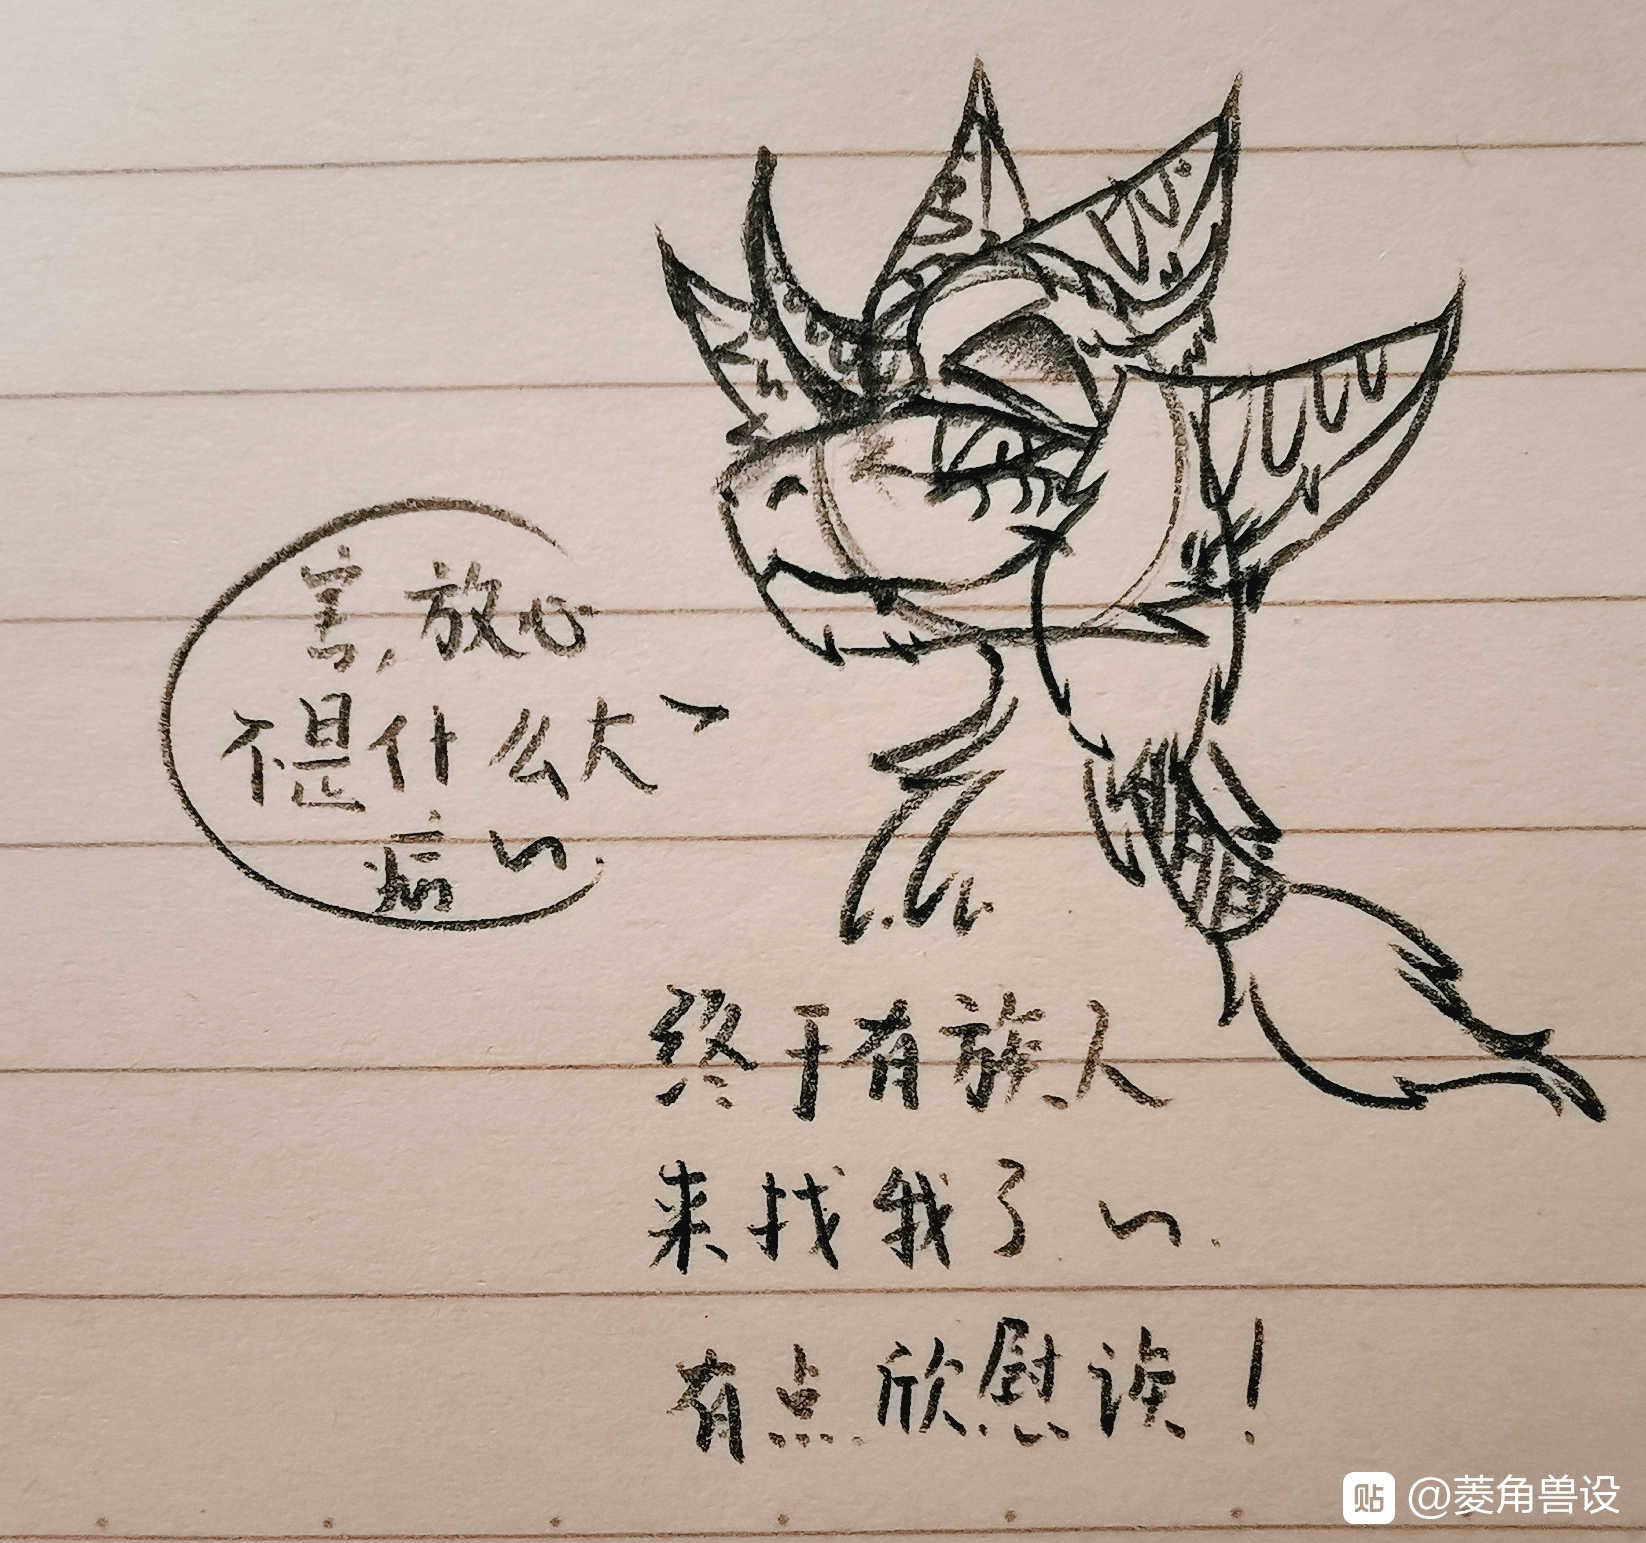 害,放心
不是什么大
病~.
终于有族人
来找我了~.
有点欣慰诶!
贴 @菱角兽设